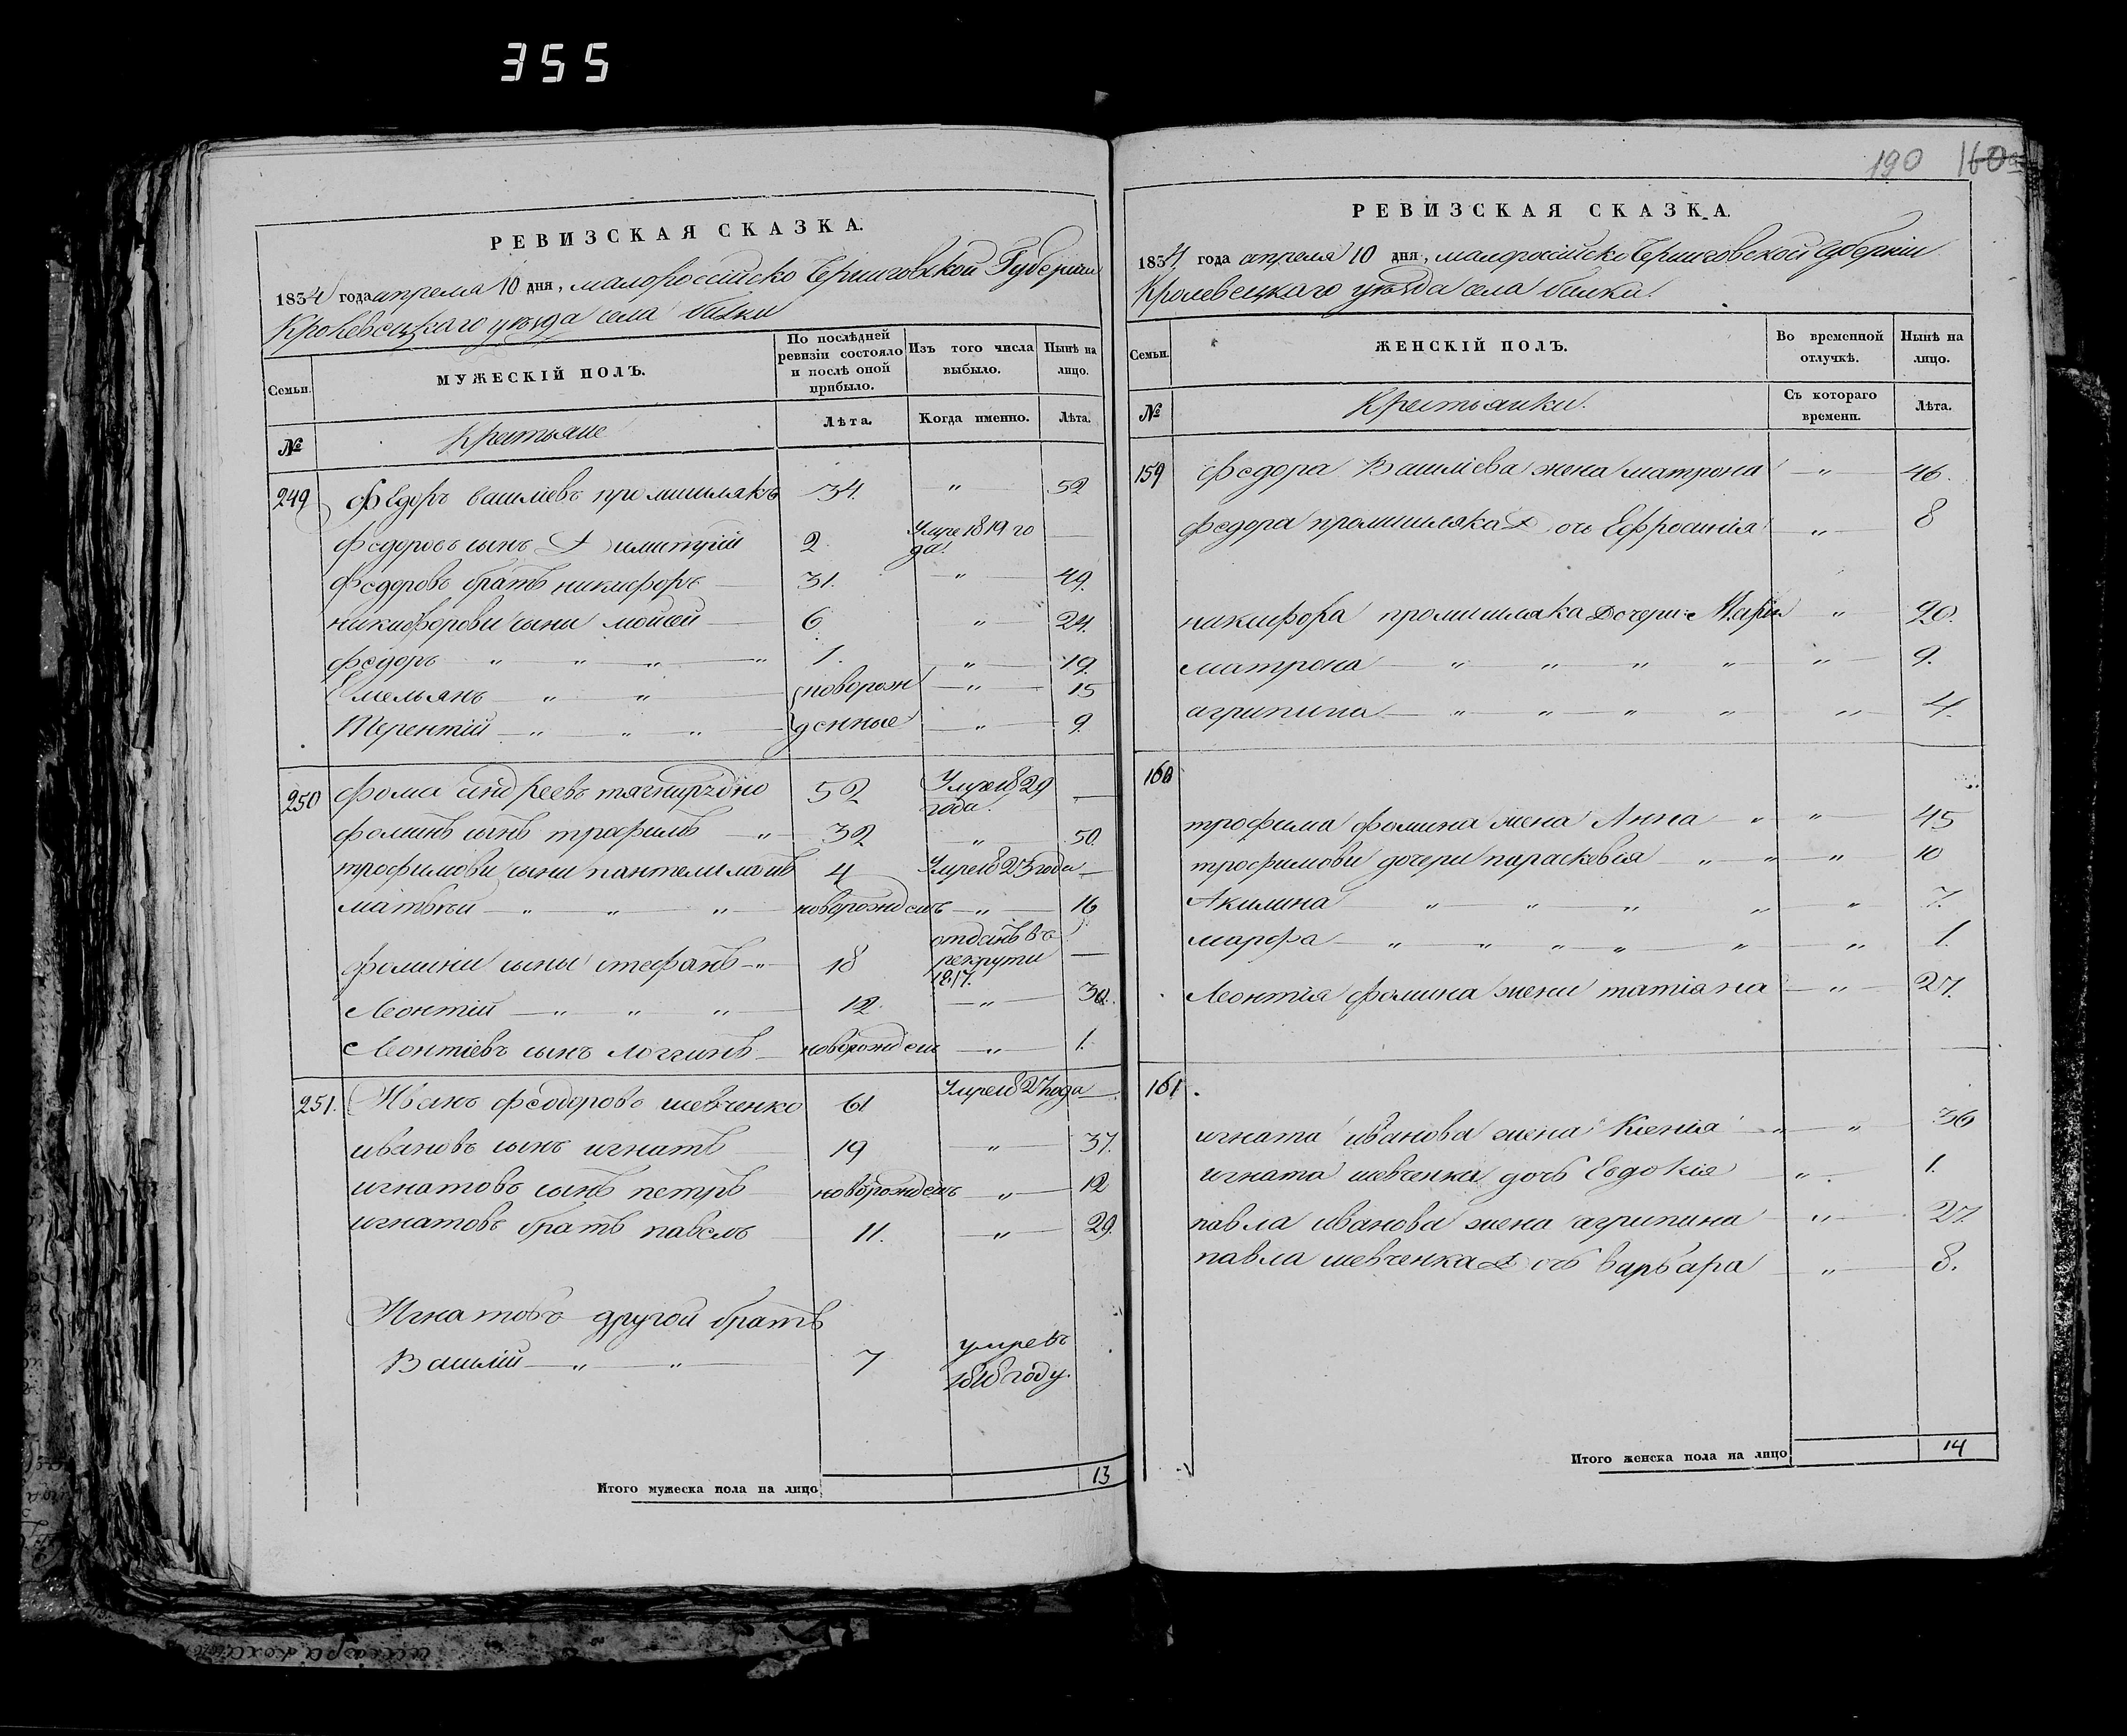 355
РЕВИЗСКАЯ СКАЗКА.
1834 года апреля 10 дня, малоросcийско Черниговской Губернии
Кролевецкаго уезда села
Семьи.
МУЖЕСКІЙ ПОЛЪ.
По послѣдней ревизіи состояло и послѣ оной прибыло.
Изъ того числа выбыло.
Нынѣ на лицо.
№
Крестьяне
Лѣта.
Когда именно.
Лѣта.
249 Федоръ василіевъ промишлякъ 34. " 52
федоровъ сынъ Димитрій 2 Умре 1819 го
да.
федоровъ братъ никифоръ 31. " 49.
никифорови сыни мойсей 6 " 24.
федоръ " " " " 1. " 19.
Емельянъ " " новорож " 15
Терентій " " " денные " 9.
250 фома андреевъ 52 Умре 1829
года.
фоминъ сынъ трофимъ " 32 " 50.
трофимови сыни пантелимонъ 4 Умре 1823 года
матвѣй " " " новорожденъ " 16
фомини сыны стефанъ " 18 отданъ въ
рекрути
1817.
Леонтій " " " 12. " 30.
Леонтіевъ сынъ логгинъ новорожденъ " 1.
251. Иванъ феодоровъ шевченко 61 Умре 1827 года
ивановъ сынъ игнатъ 19 " 37.
игнатовъ сынъ петръ новорожденъ " 12
игнатовъ братъ павелъ 11. " 29.
Игнатовъ другой братъ
Василій " " 7 умре въ
1818 году.
Итого мужеска пола на лицо 13
190 160
РЕВИЗСКАЯ СКАЗКА.
1834 года апреля 10 дня, малоросcійско Черниговской губерніи
Кролевецкаго уезда села
Семьи.
ЖЕНСКІЙ ПОЛЪ.
Во временной отлучкѣ.
Нынѣ на лицо.
№
Крестьянки.
Съ котораго времени.
Лѣта.
159 федора Василіева жена матрона " 46.
федора промишляка дочь Ефросинія " 8
никифора промишляка дочери Марія " 20.
матрона " " " " " 9.
агрипина " " " " " 4.
160
трофима фомина жена Анна " " 45
трофимови дочери парасковія " " " 10
Акилина " " " " " 7.
марфа " " " " " " 1.
Леонтія фомина жена татіяна " 27.
161.
игната иванова жена Ксенія " " 36
игната шевченка дочь Евдокія " 1.
павла иванова жена агрипина " 27.
павла шевченка дочь варвара " 8.
Итого женска пола на лицо 14